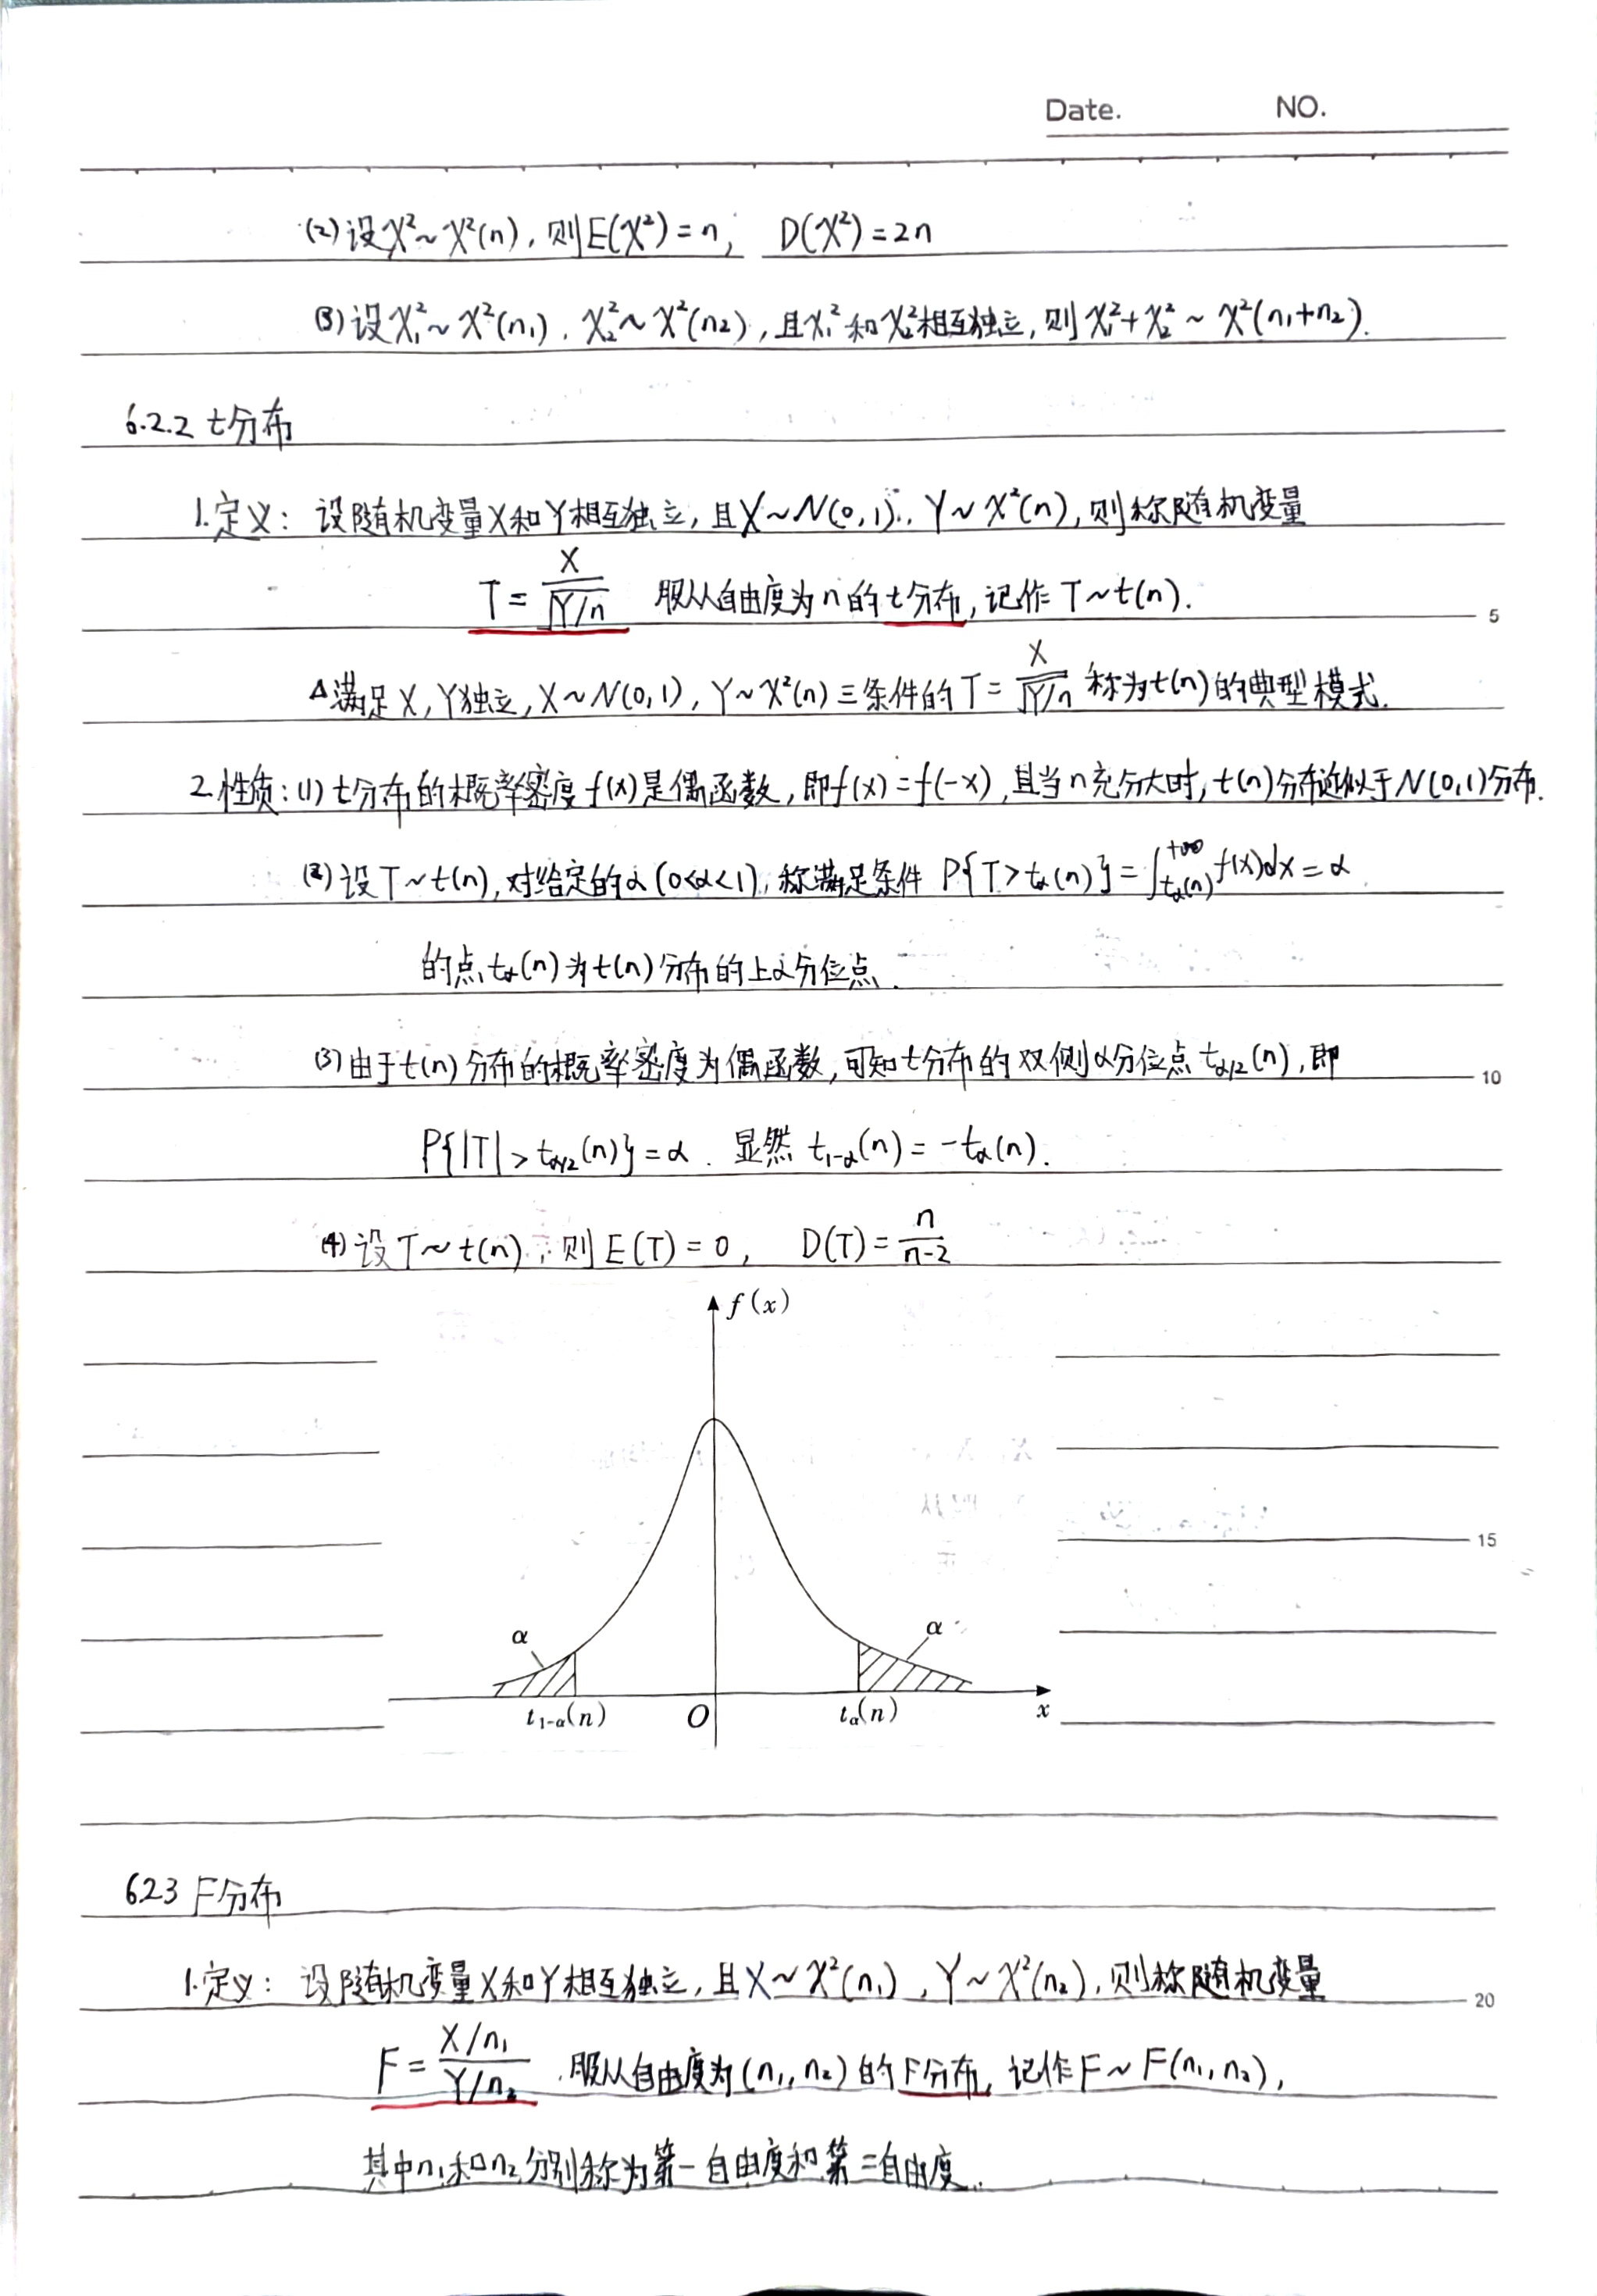 Date. NO.
(2) 设χ²~χ²(n), 则E(χ²)=n, D(χ²)=2n
(3) 设χ₁²~χ²(n₁), χ₂²~χ²(n₂), 且χ₁²和χ₂²相互独立, 则χ₁²+χ₂²~χ²(n₁+n₂).
6.2.2 t分布
1.定义: 设随机变量X和Y相互独立, 且X~N(0,1), Y~χ²(n), 则称随机变量
T = X/√(Y/n) 服从自由度为n的t分布, 记作T~t(n). 5
Δ满足X, Y独立, X~N(0,1), Y~χ²(n)三条件的T = X/√(Y/n) 称为t(n)的典型模式.
2.性质: (1) t分布的概率密度f(x)是偶函数, 即f(x)=f(-x), 且当n充分大时, t(n)分布近似于N(0,1)分布.
(2) 设T~t(n), 对给定的α(0<α<1), 称满足条件 P{T>tα(n)}=∫_{tα(n)}^{+∞} f(x)dx=α
的点tα(n)为t(n)分布的上α分位点.
(3) 由于t(n)分布的概率密度为偶函数, 可知t分布的双侧α分位点t_{α/2}(n), 即 10
P{|T|>t_{α/2}(n)}=α. 显然 t_{1-α}(n)=-tα(n).
(4) 设T~t(n), 则E(T)=0, D(T)=n/(n-2)
f(x)
15
α α
t_{1-α}(n) O tα(n) x
6.2.3 F分布
1.定义: 设随机变量X和Y相互独立, 且X~χ²(n₁), Y~χ²(n₂), 则称随机变量 20
F = (X/n₁)/(Y/n₂) 服从自由度为(n₁, n₂)的F分布, 记作F~F(n₁, n₂),
其中n₁和n₂分别称为第一自由度和第二自由度.